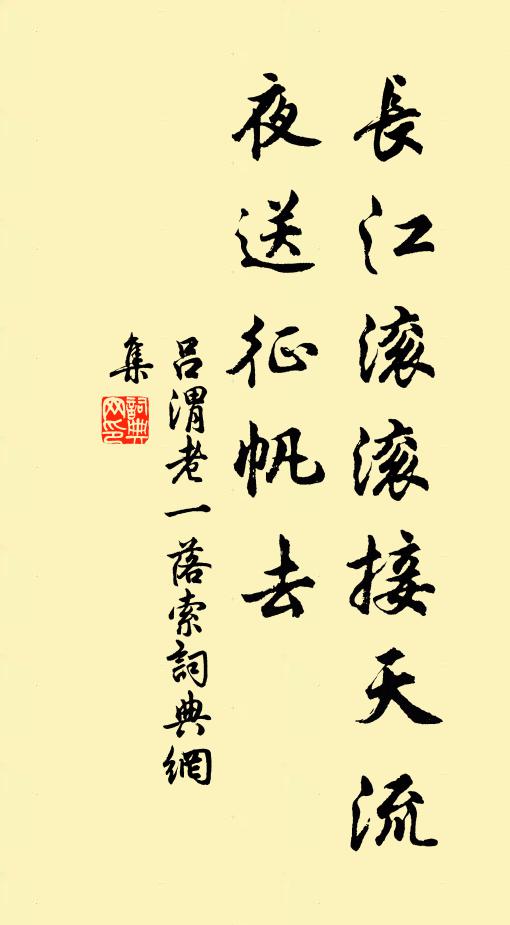 長江滚滚接天流
夜送征帆去
吕渭老一落索詞典網
集
詞典
网印